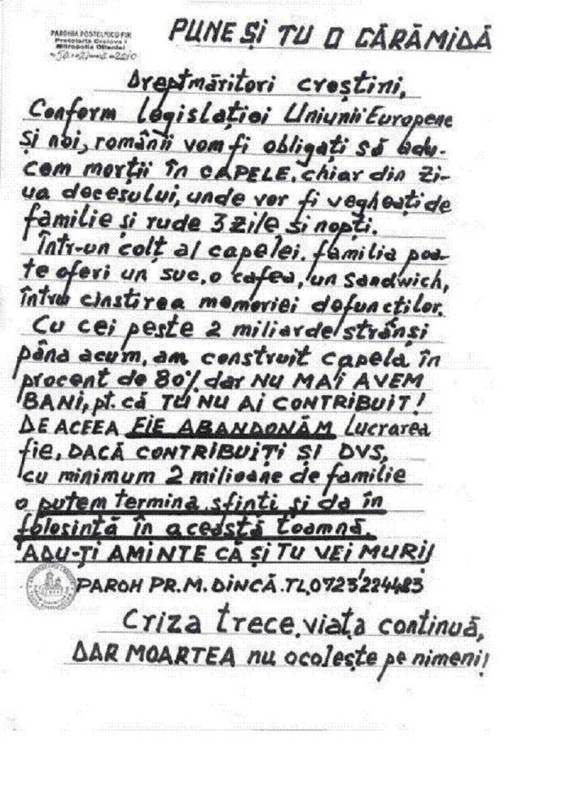 PAROHIA POSTELNICU FIR
Protoieria Craiova I
Mitropolia Olteniei
PUNE ȘI TU O CĂRĂMIDĂ
Dreptmăritori creștini,
Conform legislației Uniunii Europene
și noi, românii vom fi obligați să adu-
cem morții în CAPELE, chiar din zi-
ua decesului, unde vor fi vegheați de
familie și rude 3 zile și nopți.
Într-un colț al capelei, familia poa-
te oferi un suc, o cafea, un sandwich,
întru cinstirea memoriei defuncților.
Cu cei peste 2 miliarde strânși
până acum, am construit capela în
procent de 80% dar NU MAI AVEM
BANI, pt. că TU NU AI CONTRIBUIT!
DE ACEEA FIE ABANDONĂM lucrarea
fie, DACĂ CONTRIBUIȚI ȘI DVS,
cu minimum 2 milioane de familie
o putem termina, sfinți și da în
folosință în această toamnă.
ADU-ȚI AMINTE CĂ ȘI TU VEI MURI!
PAROH PR. M. DINCĂ. TL, 0723/224483
Criza trece, viața continuă,
DAR MOARTEA nu ocolește pe nimeni!